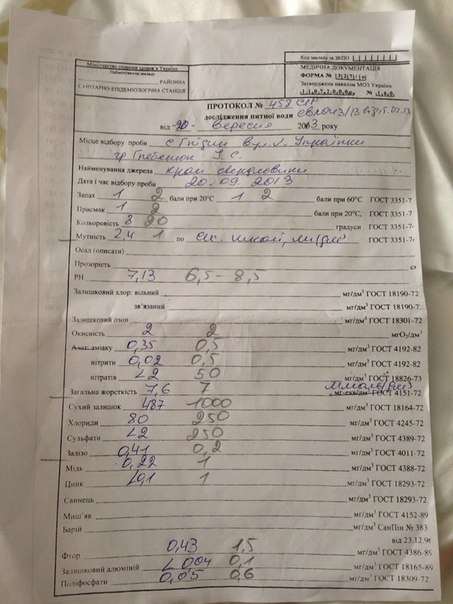 Міністерство охорони здоров'я України
Код закладу за ЗКПО
Найменування закладу
МЕДИЧНА ДОКУМЕНТАЦІЯ
РАЙОННА
ФОРМА №
САНІТАРНО-ЕПІДЕМІОЛОГІЧНА СТАНЦІЯ
Затверджена наказом МОЗ України
ПРОТОКОЛ № 458
дослідження питної води
від 20 вересня 2003 року
Місце відбору проби с. Гнідин вул. Л. Українки
гр. Гребенюк
Найменування джерела кран свердловини
Дата і час відбору проби 20.09.2013
Запах 1 2 бали при 20°С 1 2 бали при 60°С ГОСТ 3351-7
Присмак 1 2 бали при 20°С, ГОСТ 3351-7
Кольоровість 8 20 градуси ГОСТ 3351-7
Мутність 2,4 1 по ГОСТ 3351-7
Осад (описати)
Прозорість см
РН 7,13 6,5-8,5
Залишковий хлор: вільний мг/дм³ ГОСТ 18190-72
зв'язаний мг/дм³ ГОСТ 18190-7
Залишковий озон мг/дм³ ГОСТ 18301-72
Окисність 2 2 мгО₂/дм³
Азот: аміаку 0,35 0,5 мг/дм³ ГОСТ 4192-82
нітрити 0,02 0,5 мг/дм³ ГОСТ 4192-82
нітратів <2 50 мг/дм³ ГОСТ 18826-73
Загальна жорсткість 7,6 7 мг-екв/дм³ ГОСТ 4151-72
Сухий залишок 487 1000 мг/дм³ ГОСТ 18164-72
Хлориди 80 250 мг/дм³ ГОСТ 4245-72
Сульфати <2 250 мг/дм³ ГОСТ 4389-72
Залізо 0,41 0,2 мг/дм³ ГОСТ 4011-72
Мідь 0,22 1 мг/дм³ ГОСТ 4388-72
Цинк <0,1 1 мг/дм³ ГОСТ 18293-72
Свинець мг/дм³ ГОСТ 18293-72
Миш'як мг/дм³ ГОСТ 4152-89
Барій мг/дм³ СанПін № 383
від 23.12.96
Фтор 0,43 1,5 мг/дм³ ГОСТ 4386-89
Залишковий алюміній <0,04 0,1 мг/дм³ ГОСТ 18165-89
Поліфосфати 0,05 0,6 мг/дм³ ГОСТ 18309-72